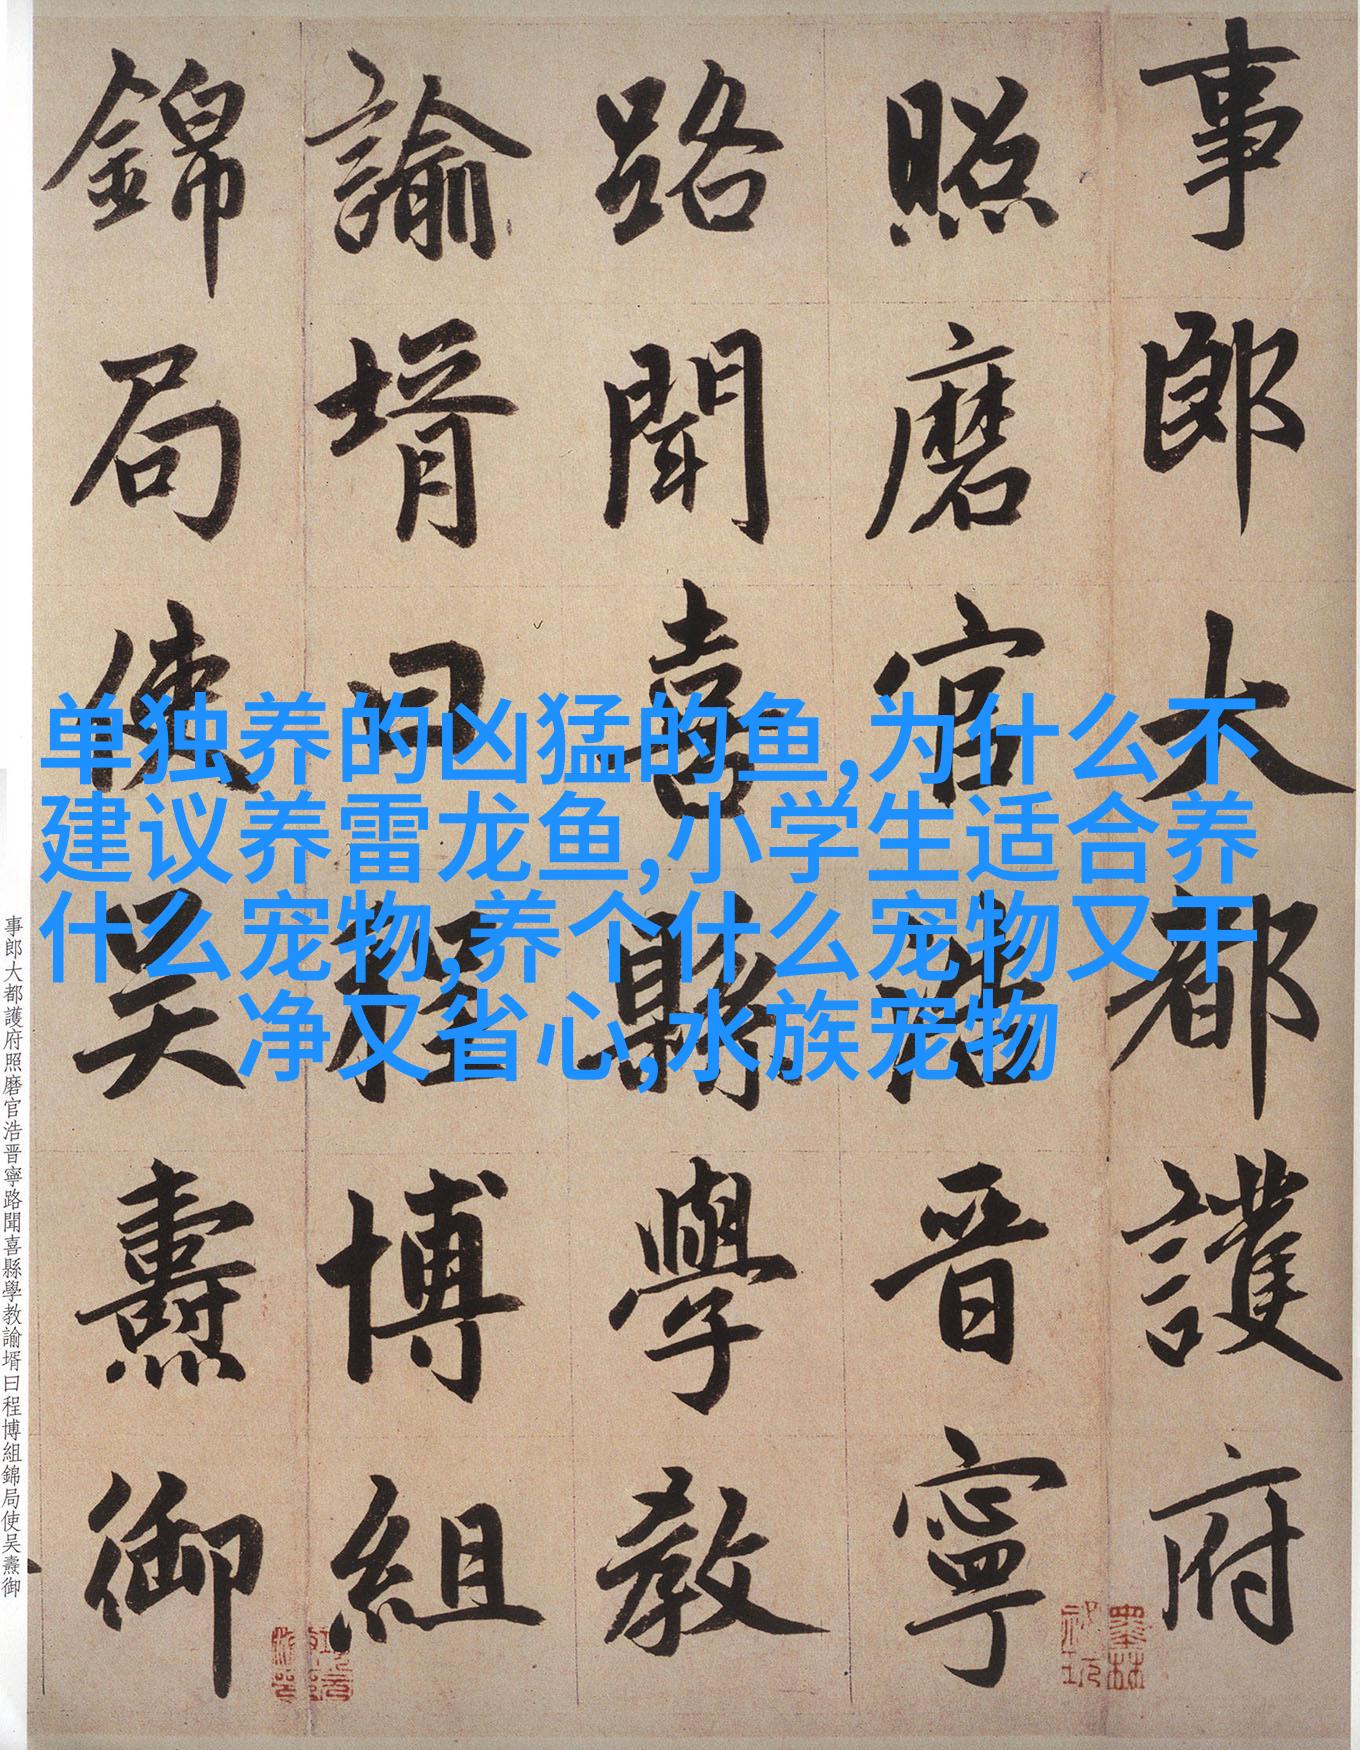 事郎大都護府
照磨官浩晋寧
路聞喜縣學教
諭壻曰程博組
錦局使吴燾御
单独养的凶猛的鱼,为什么不
建议养雷龙鱼,小学生适合养
什么宠物,养个什么宠物又干
净又省心,水族宠物
事郎大都護府照磨官浩晋寧路聞喜縣學教諭壻曰程博組錦局使吴燾御